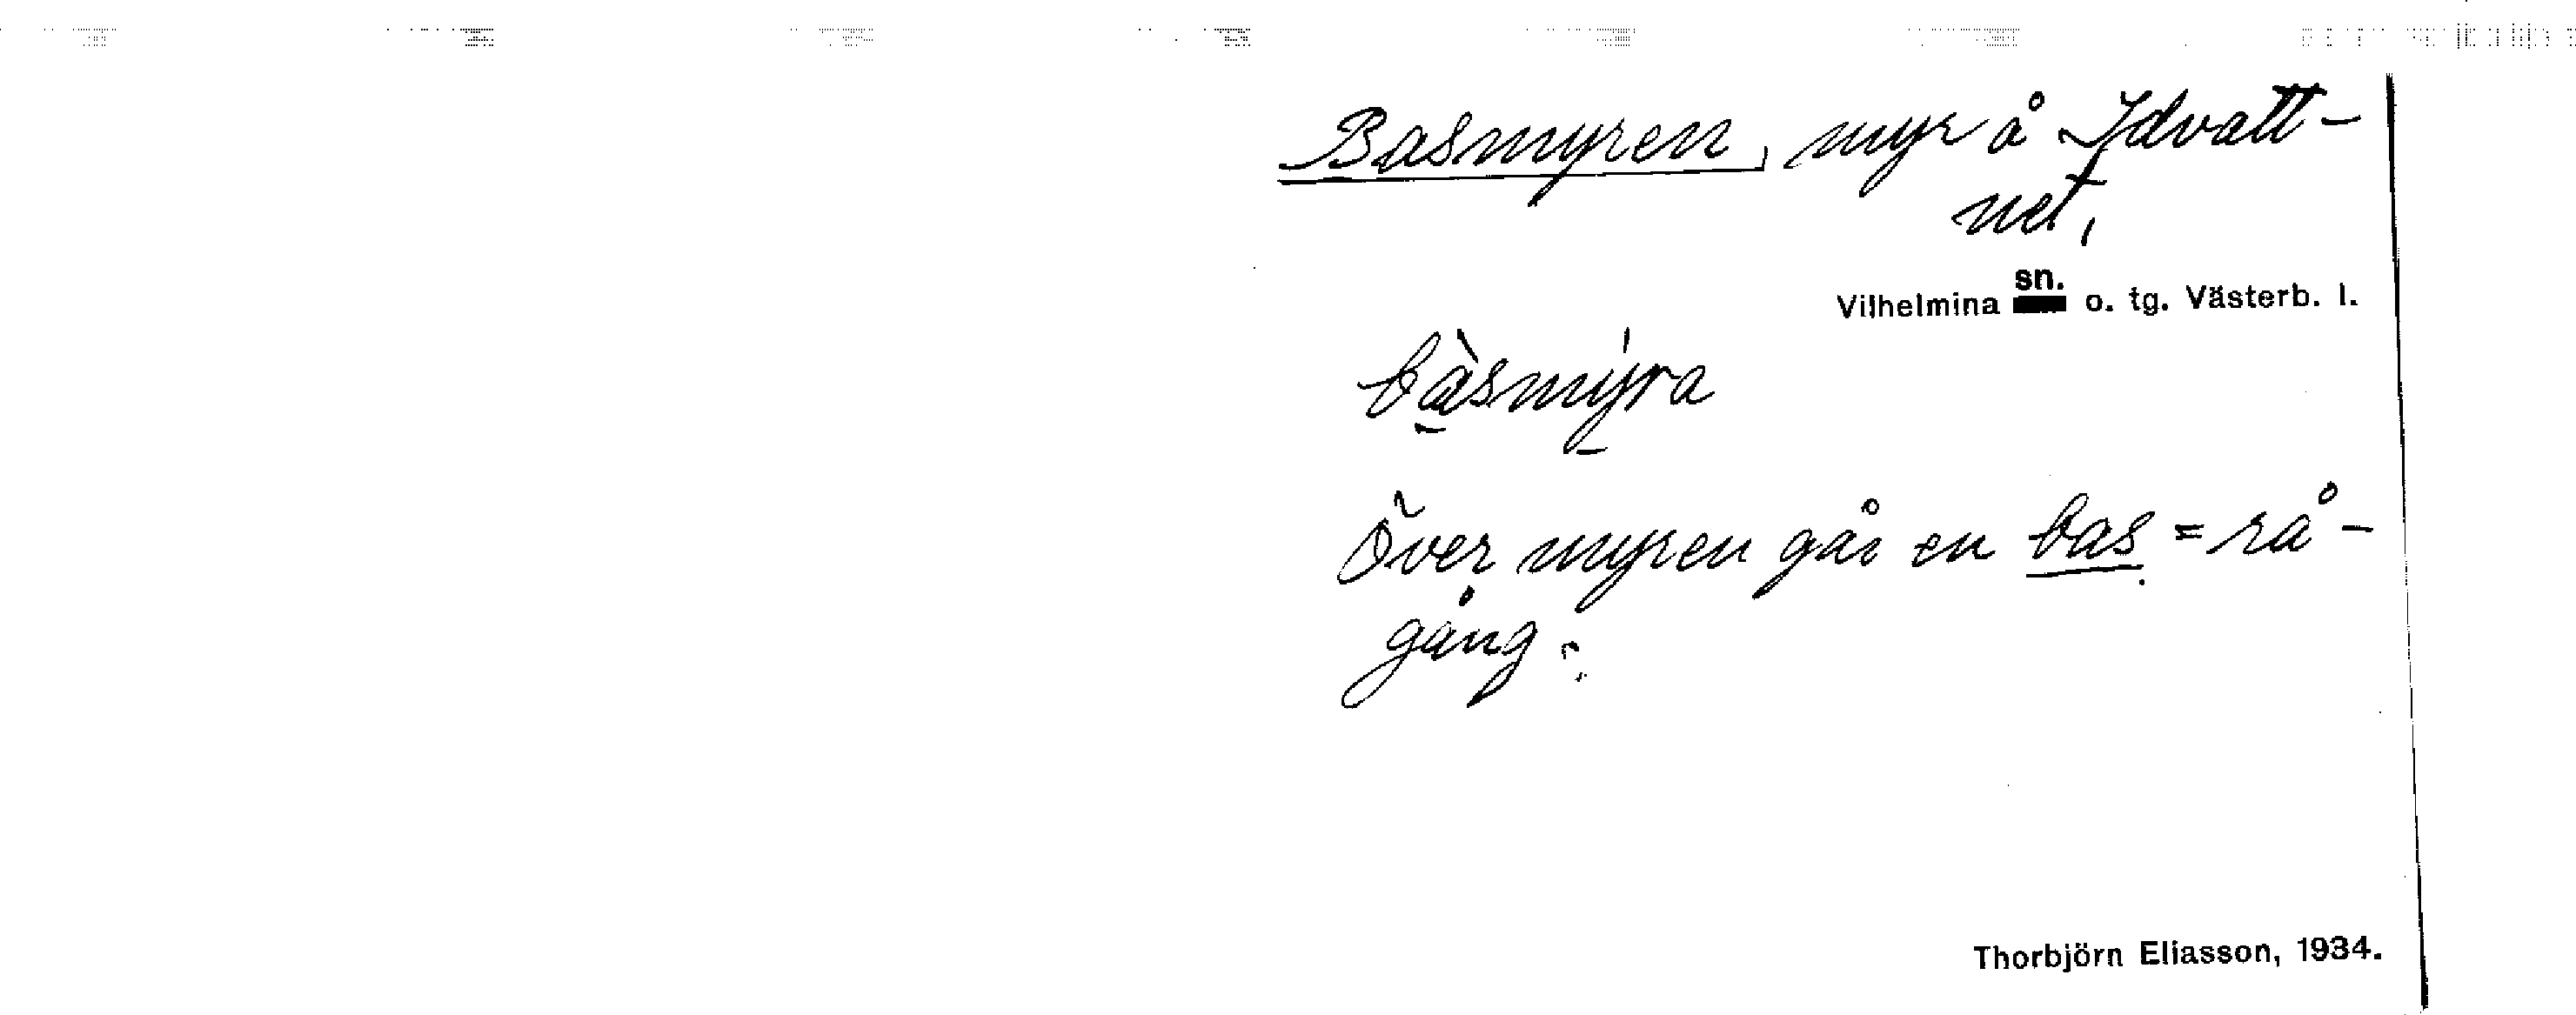 Basmyren, myr å Idvatt-
net,
Vilhelmina sn. o. tg. Västerb. l.
bàsmýra
Över myren går en bas = rå-
gång.
Thorbjörn Eliasson, 1934.